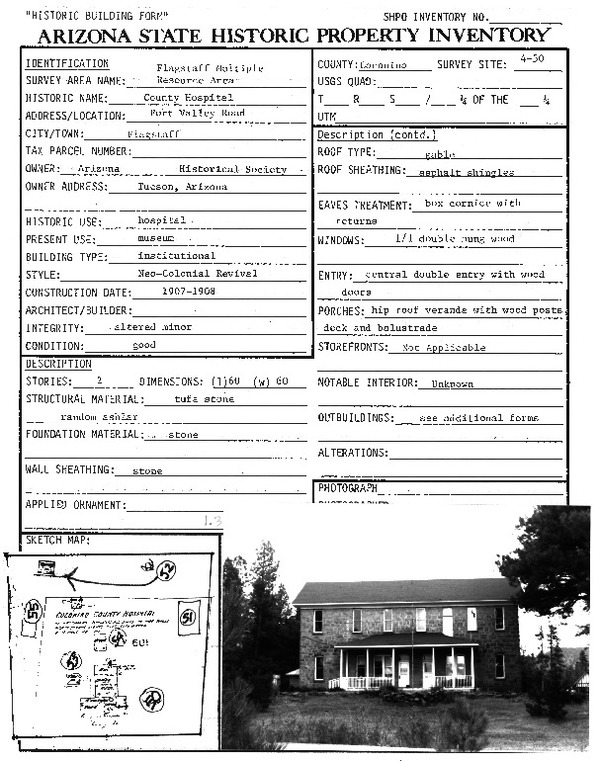 "HISTORIC BUILDING FORM"
SHPO INVENTORY NO.
ARIZONA STATE HISTORIC PROPERTY INVENTORY
IDENTIFICATION
SURVEY AREA NAME: Flagstaff Multiple Resource Area
HISTORIC NAME: County Hospital
ADDRESS/LOCATION: Fort Valley Road
CITY/TOWN: Flagstaff
TAX PARCEL NUMBER:
OWNER: Arizona Historical Society
OWNER ADDRESS: Tucson, Arizona
HISTORIC USE: hospital
PRESENT USE: museum
BUILDING TYPE: institutional
STYLE: Neo-Colonial Revival
CONSTRUCTION DATE: 1907-1908
ARCHITECT/BUILDER:
INTEGRITY: altered minor
CONDITION: good
DESCRIPTION
STORIES: 2 DIMENSIONS: (l)60 (w) 60
STRUCTURAL MATERIAL: tufa stone
random ashlar
FOUNDATION MATERIAL: stone
WALL SHEATHING: stone
APPLIED ORNAMENT:
1.3
COUNTY: Coconino SURVEY SITE: 4-50
USGS QUAD:
T R S / ¼ OF THE ¼
UTM
Description (contd.)
ROOF TYPE: gable
ROOF SHEATHING: asphalt shingles
EAVES TREATMENT: box cornice with
returns
WINDOWS: 1/1 double hung wood
ENTRY: central double entry with wood
doors
PORCHES: hip roof veranda with wood posts
deck and balustrade
STOREFRONTS: Not Applicable
NOTABLE INTERIOR: Unknown
OUTBUILDINGS: see additional forms
ALTERATIONS:
PHOTOGRAPH
SKETCH MAP:
52
55
COCONINO COUNTY HOSPITAL
51
601